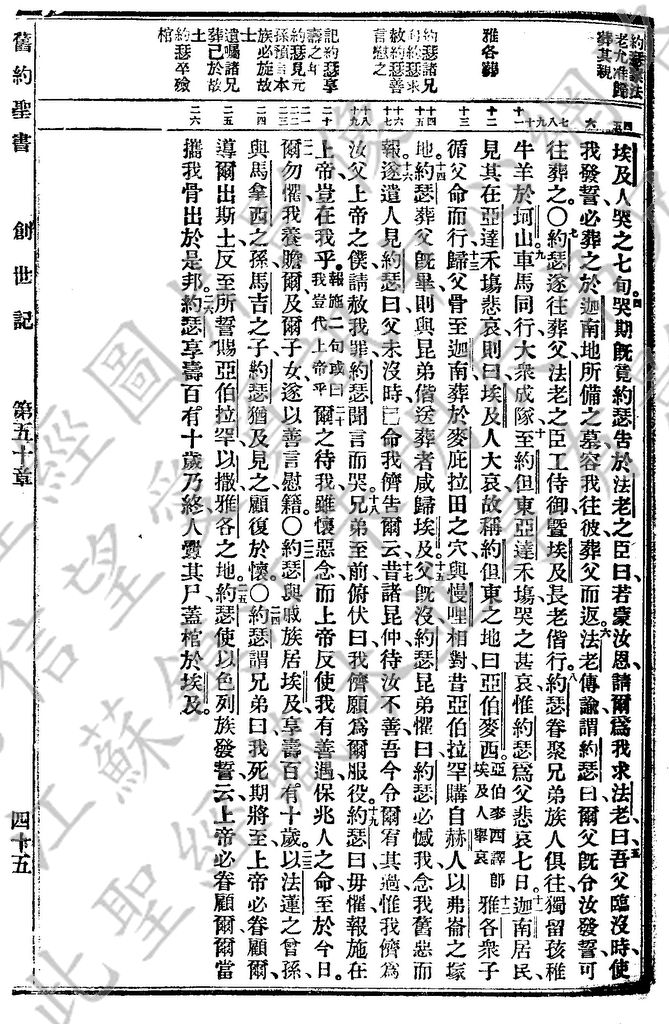 埃及人哭之七旬、哭期旣竟、約瑟告於法老之臣曰、若蒙汝恩、請爾爲我求法老曰、吾父臨沒時、使
我發誓、必葬之於迦南地所備之墓、容我往彼葬父而返、法老傳諭謂約瑟曰、爾父旣令汝發誓、可
往葬之。〇約瑟遂往葬父、法老之臣工侍御、曁埃及長老偕行、約瑟眷聚、兄弟族人俱往、獨留孩稚
牛羊於坷山、車馬同行、大衆成隊、至約但東亞達禾塲、哭之甚哀、惟約瑟爲父悲哀七日。迦南居民、
見其在亞達禾塲悲哀、則曰、埃及人大哀、故稱約但東之地曰亞伯麥西。亞伯麥西譯卽埃及人舉哀 雅各衆子
循父命而行、歸父骨至迦南、葬於麥庇拉田之穴、與慢哩相對、昔亞伯拉罕購自赫人以弗崙之塚
地。約瑟葬父旣畢、則與昆弟偕送葬者咸歸埃及。父旣沒、約瑟昆弟懼曰、約瑟必憾我、念我舊惡而
報、遂遣人見約瑟曰、父未沒時、已命我儕告爾云、昔諸昆仲待汝不善、吾今令爾宥其過、惟我儕爲
汝父上帝之僕、請赦我罪、約瑟聞言而哭。兄弟至前俯伏曰、我儕願爲爾服役、約瑟曰、毋懼、報施在
上帝、豈在我乎。報施二句或曰我豈代上帝乎 爾之待我、雖懷惡念、而上帝反使我有善遇、保兆人之命、至於今日。
爾勿懼、我養贍爾、及爾子女、遂以善言慰籍。〇約瑟與戚族居埃及、享壽百有十歲、以法蓮之曾孫
與馬拿西之孫、馬吉之子、約瑟猶及見之、顧復於懷。〇約瑟謂兄弟曰、我死期將至、上帝必眷顧爾、
導爾出斯土、反至所誓賜亞伯拉罕以撒雅各之地、約瑟使以色列族發誓云、上帝必眷顧爾、爾當
攜我骨出於是邦、約瑟享壽百有十歲乃終、人釁其尸、蓋棺於埃及。
約瑟求法老允准歸葬其親
雅各葬
約瑟諸兄弟約瑟求赦約瑟善言慰之
記約瑟享壽之年
約瑟見元孫預言本族必旋故土
遺囑諸兄葬已於故土
約瑟卒殮棺
舊約聖書 創世記 第五十章 四十五